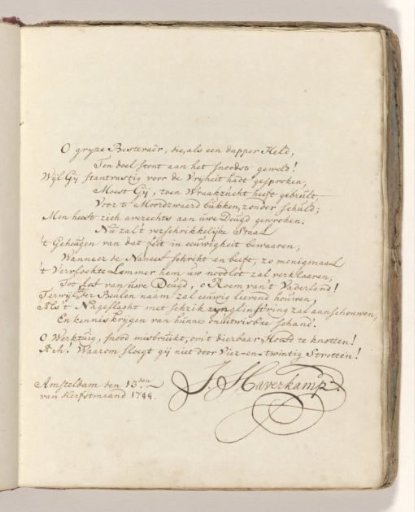 O gryze Bestevaêr, die, als een dapper Held,
Ten doel stont aan het snoodste geweld!
Wyl Gij stantvastig voor de Vryheit hadt gesproken,
Moest Gij, toen Wraakzucht heeft gebrult,
Voor 't Moordzwaerd bukken, zonder schuld;
Men heeft zich averechts aan uwe Deugd gewroken.
Nu zal 't verschrikkelijke Staal
't Geheugen van dat feit in eeuwigheit bewaaren;
Wanneer de Naneef schrikt en beeft, zo menigmaal
't Vervloekte Lemmer hem uw noodlot zal verklaaren;
Tot Lof van uwe Deugd, o Roem van 't Vaderland!
Terwyl der Beulen naam zal eeuwig leevend houwen,
Als 't Nageslacht met schrik zyn zal aanschouwen,
En kennis krygen van hunne schand.
O Werktuig, snood misbruikt, om 't dierbaar Hoofd te knotten!
Ach! Waarom sloegt gij niet door Vier-en-twintig Strotten!
Amsteldam den 13den
van Herfstmaand 1744.
J. Haverkamp.